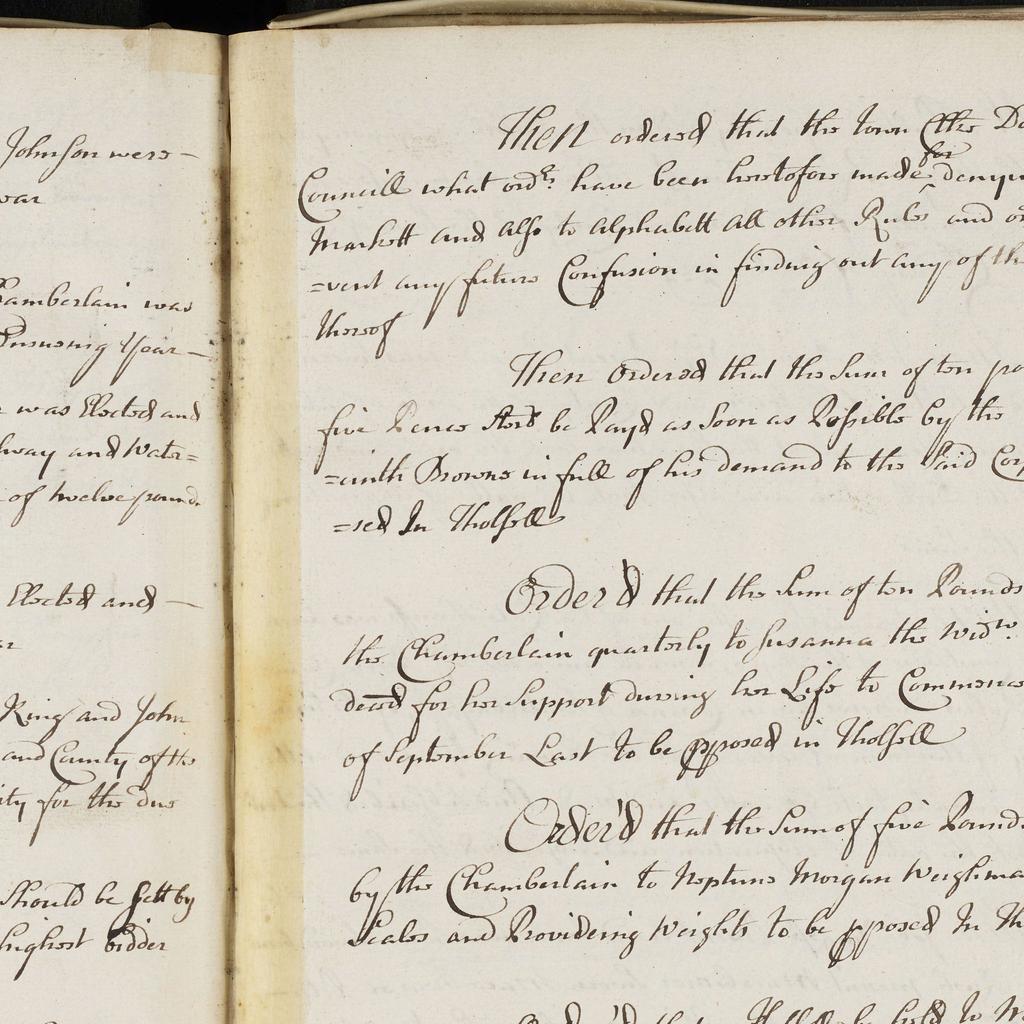 Johnson were —
Chamberlain was
Ensueing Year —
was Elected and
way and Water=
of twelve pound
Elected and —
King and John
and County of the
ity for the due
should be sett by
highest bidder
Then ordered that the Town
Councill what ordrs. have been heretofore made for
Markett and also to Alphabett All other Rules and
=vent any future Confusion in finding out any of th
thereof
Then Ordered that the Sum of ten po
five Pence Sterd be Payd as Soon as Possible by the
Browne in full of his demand to the Said Cor
=sed In Tholsell
Order'd that the Sum of ten Pounds
the Chamberlain quarterly to Susanna the Widw.
decd for her Support dureing her Life to Commence
of September Last to be pposed in Tholsell
Order'd that the Sum of five Pounds
by the Chamberlain to Neptune Morgan Weighma
Scales and Provideing Weights to be pposed In Th